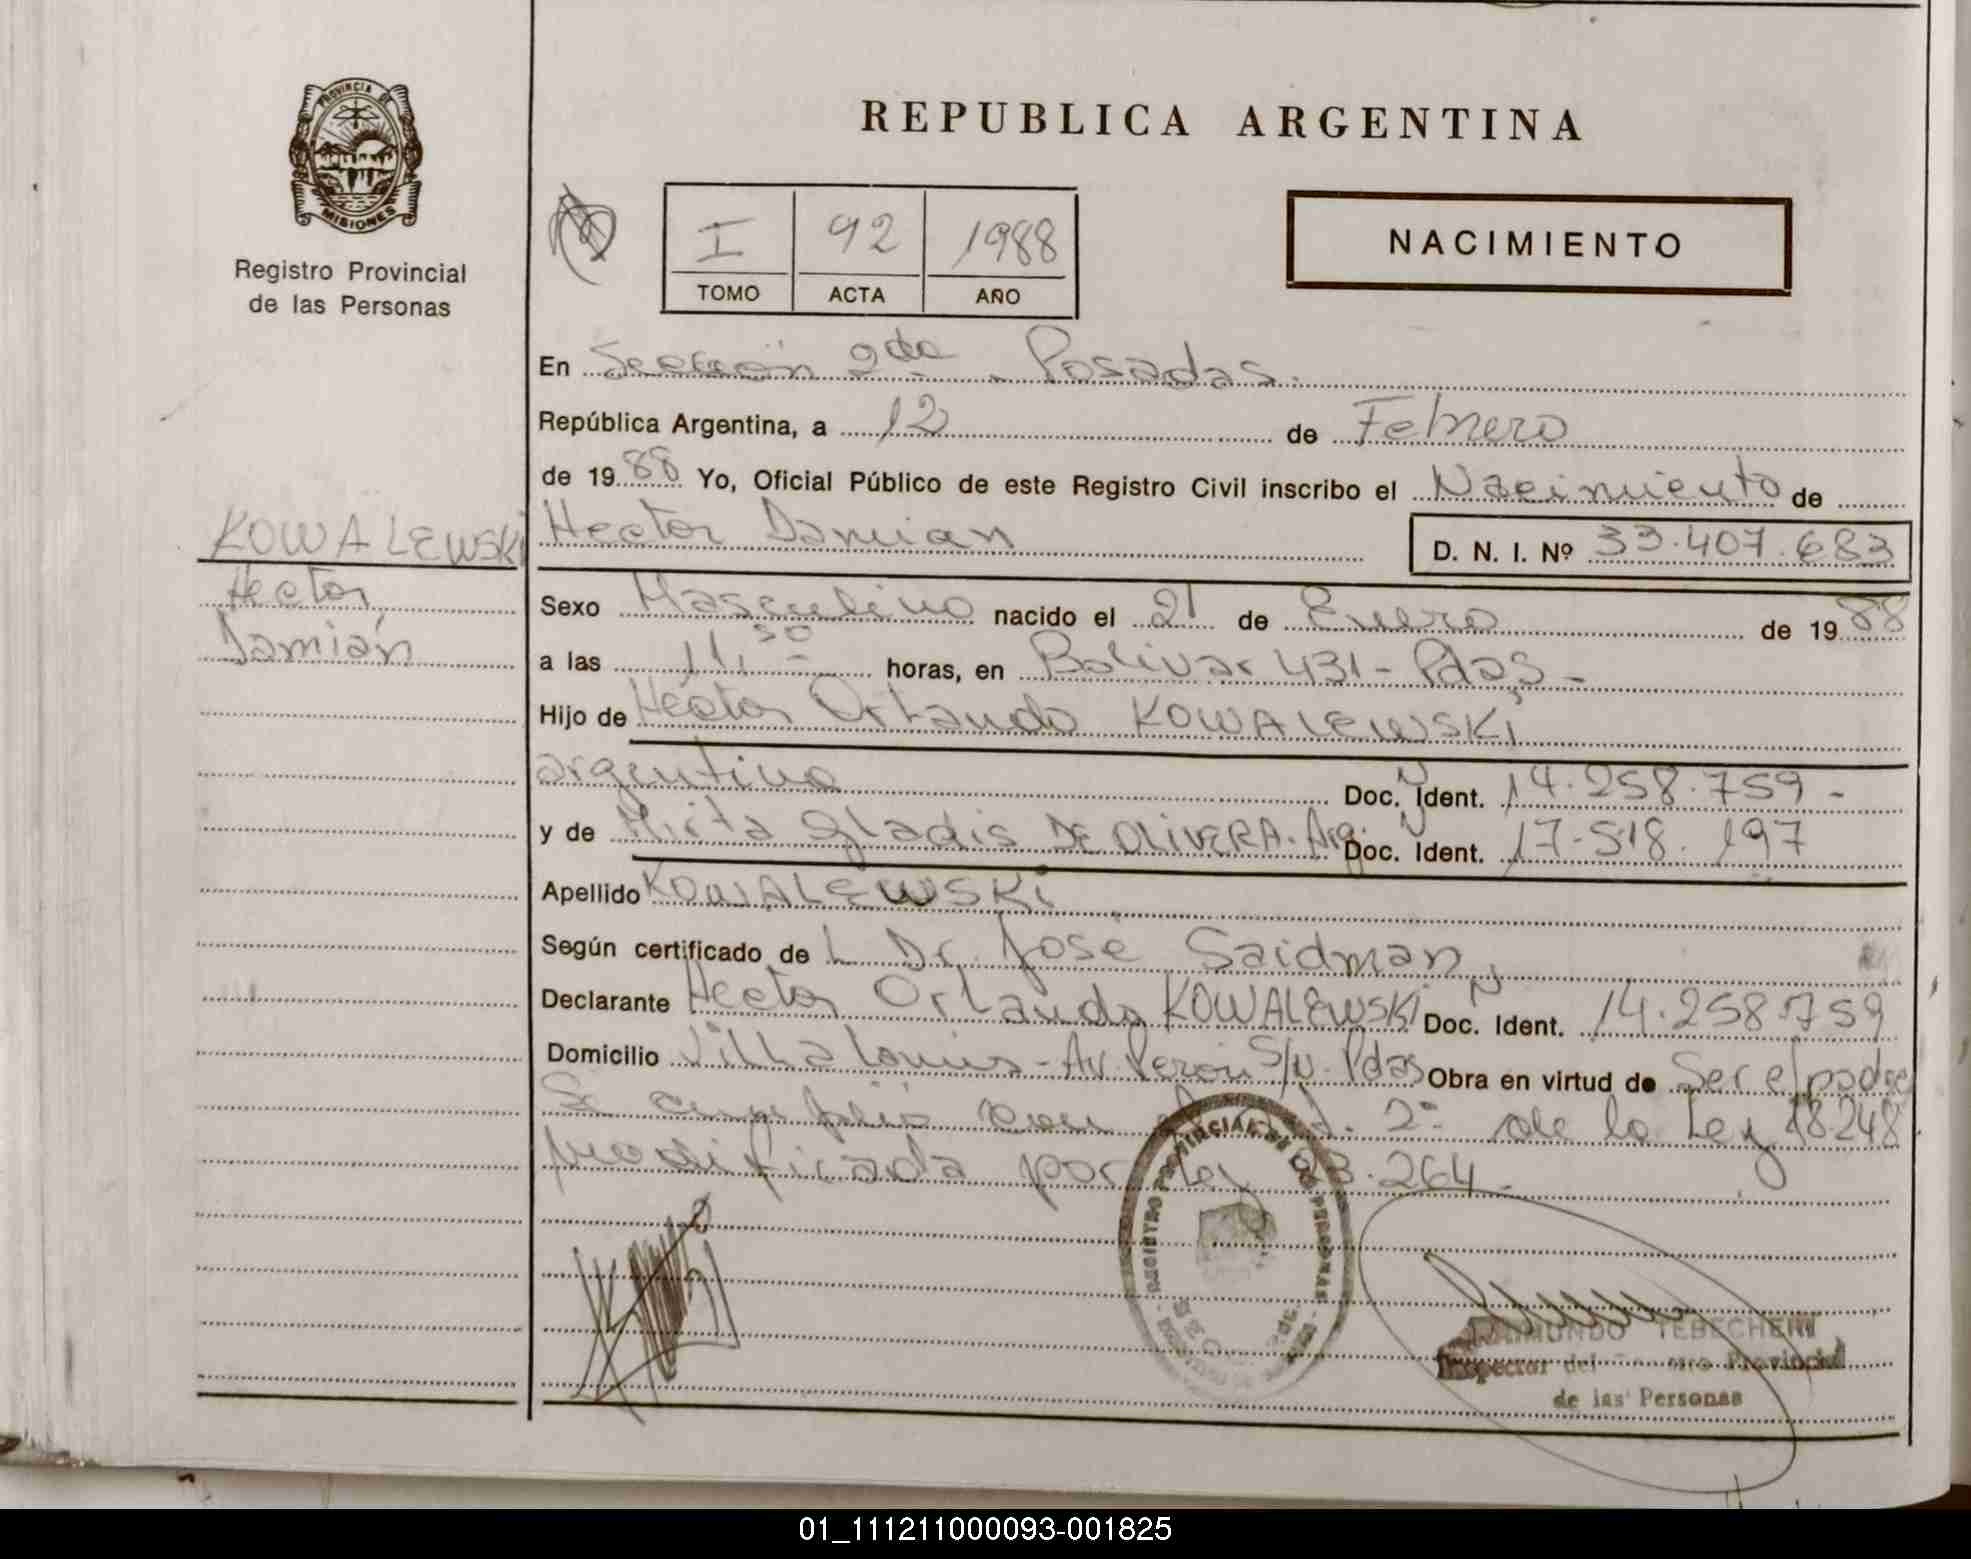 PROVINCIA DE
MISIONES
Registro Provincial
de las Personas
REPUBLICA ARGENTINA
I 92 1988
TOMO ACTA AÑO
NACIMIENTO
En Sección 2da - Posadas.
República Argentina, a 12 de Febrero
de 1988 Yo, Oficial Público de este Registro Civil inscribo el Nacimiento de
KOWALEWSKI Hector Damian D. N. I. Nº 33.407.683
Hector Sexo Masculino nacido el 21 de Enero de 1988
Damián a las 11,30 horas, en Bolivar 431 - Pdas -
Hijo de Héctor Orlando KOWALEWSKI
argentino Doc. Ident. 14.258.759 -
y de Mirta Gladis DE OLIVERA. Arg. Doc. Ident. 17.518.197
Apellido KOWALEWSKI
Según certificado de L Dr. José Saidman
Declarante Hector Orlando KOWALEWSKI Doc. Ident. 14.258.759
Domicilio Villa Lanús - Av. Perón S/N. Pdas Obra en virtud de Ser el padre
Se cumplió con el 2º de la Ley 18.248
modificada por Ley 23.264 -
REGISTRO PROVINCIAL DE LAS PERSONAS
TEBECHERI
Inspector del Provincial
de las Personas
01_111211000093-001825